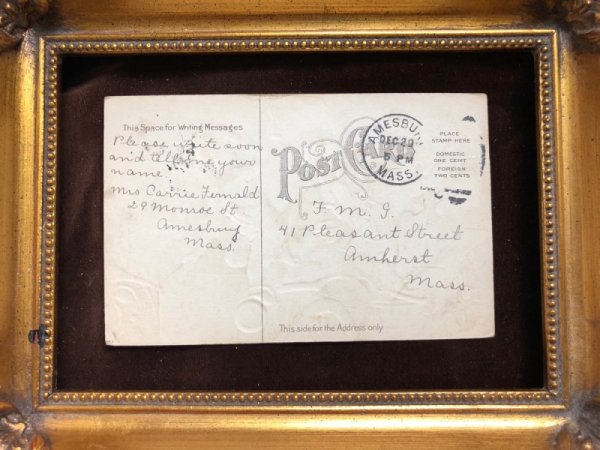 This Space for Writing Messages
Please write soon
and tell me your
name.
Mrs Carrie Fernald
29 Monroe St
Amesbury
Mass.
POST CARD
AMESBURY
DEC 29
5 PM
MASS.
PLACE
STAMP HERE
DOMESTIC
ONE CENT
FOREIGN
TWO CENTS
F. M. G.
41 Pleasant Street
Amherst
Mass.
This side for the Address only